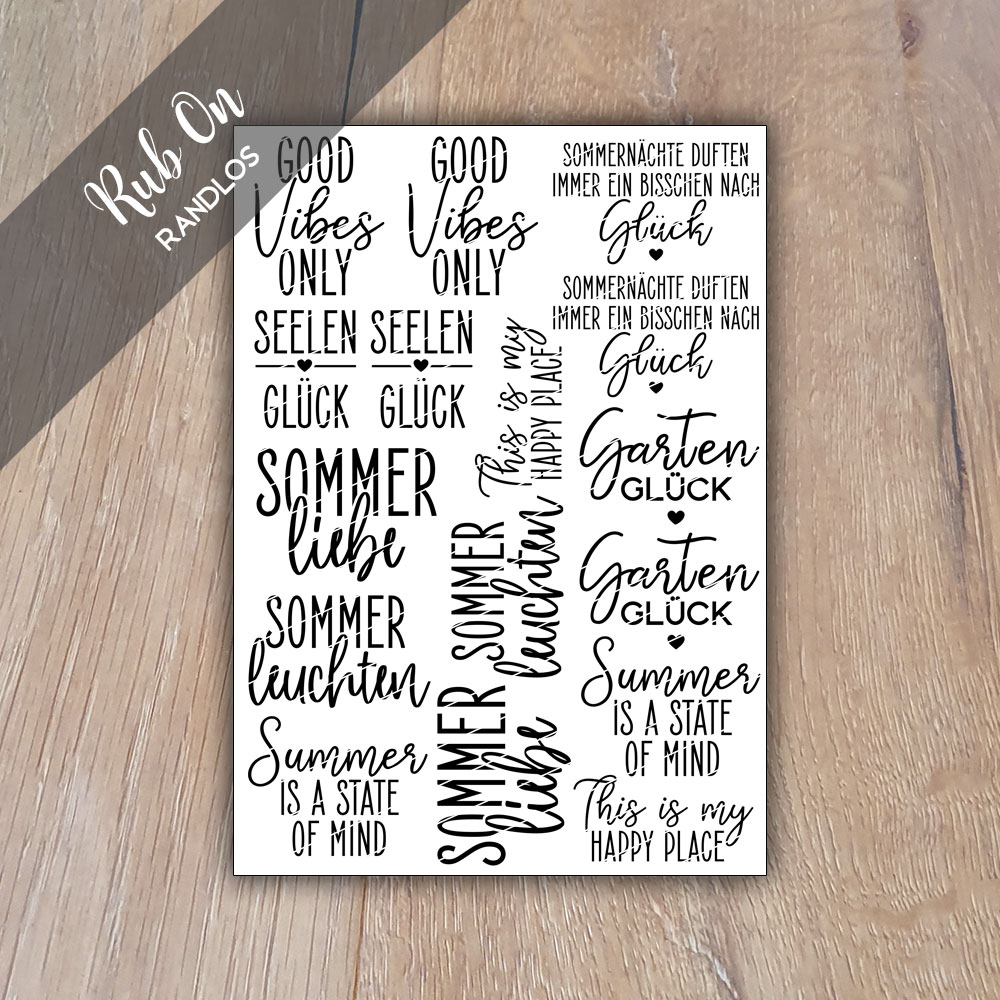 Rub On
RANDLOS
GOOD
Vibes
ONLY
GOOD
Vibes
ONLY
SOMMERNÄCHTE DUFTEN
IMMER EIN BISSCHEN NACH
Glück
SOMMERNÄCHTE DUFTEN
IMMER EIN BISSCHEN NACH
Glück
SEELEN
GLÜCK
SEELEN
GLÜCK
This is my
HAPPY PLACE
Garten
GLÜCK
SOMMER
liebe
SOMMER
leuchten
Garten
GLÜCK
SOMMER
leuchten
Summer
IS A STATE
OF MIND
SOMMER
liebe
Summer
IS A STATE
OF MIND
This is my
HAPPY PLACE